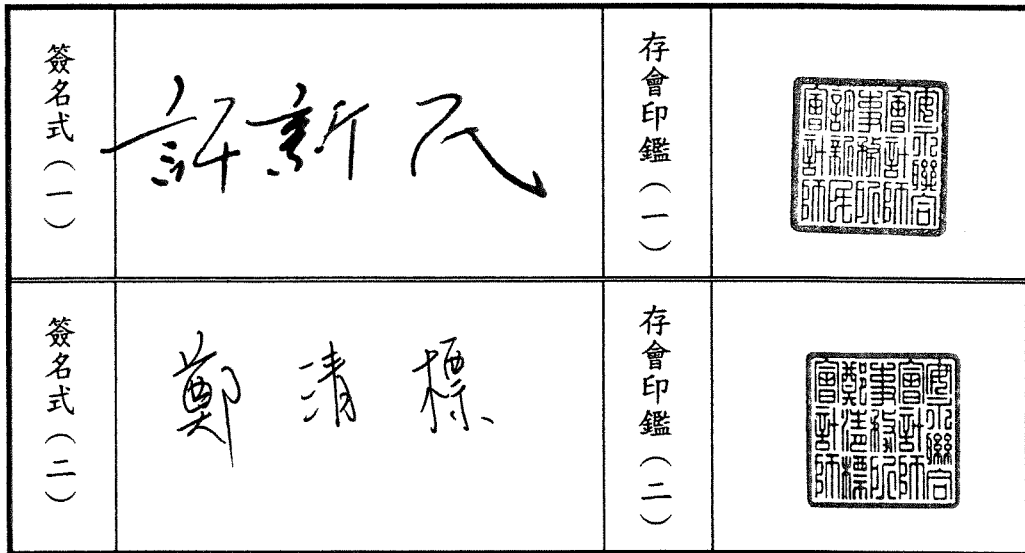 簽名式（一）
許新民
存會印鑑（一）
安永聯合
會計師
事務所
許新民
會計師
簽名式（二）
鄭清標
存會印鑑（二）
安永聯合
會計師
事務所
鄭清標
會計師